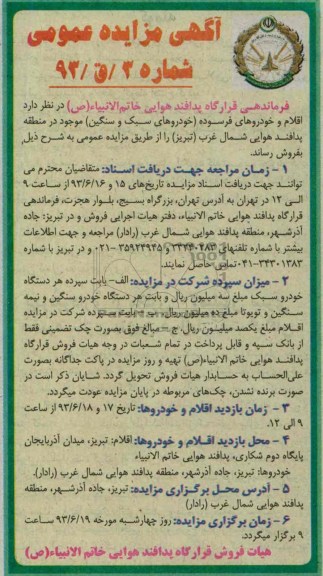 آگهی مزایده عمومی
شماره ۲/ق/۹۳
فرماندهی قرارگاه پدافند هوایی خاتم‌الانبیاء(ص) در نظر دارد
اقلام و خودروهای فرسوده (خودروهای سبک و سنگین) موجود در منطقه
پدافند هوایی شمال غرب (تبریز) را از طریق مزایده عمومی به شرح ذیل
بفروش رساند.
۱- زمان مراجعه جهت دریافت اسناد: متقاضیان محترم می
توانند جهت دریافت اسناد مزایده تاریخ‌های ۱۵ و ۹۳/۶/۱۶ از ساعت ۹
الی ۱۲ در تهران به آدرس تهران، بزرگراه بسیج، بلوار هجرت، فرماندهی
قرارگاه پدافند هوایی خاتم الانبیاء، دفتر هیات اجرایی فروش و در تبریز: جاده
آذرشهر، منطقه پدافند هوایی شمال غرب (رادار) مراجعه و جهت اطلاعات
بیشتر با شماره تلفنهای ۳۳۴۴۰۴۸۳ و ۳۵۹۲۴۹۴۵-۰۲۱ و در تبریز با شماره
۳۴۳۰۱۳۸۳-۰۴۱ تماس حاصل نمایند.
۲- میزان سپرده شرکت در مزایده: الف- بابت سپرده هر دستگاه
خودرو سبک مبلغ سه میلیون ریال و بابت هر دستگاه خودرو سنگین و نیمه
سنگین و تویوتا مبلغ ده میلیون ریال. ب- بابت سپرده شرکت در مزایده
اقلام مبلغ یکصد میلیون ریال. ج- مبالغ فوق بصورت چک تضمینی فقط
از بانک سپه و قابل پرداخت در تمام شعبات در وجه هیات فروش قرارگاه
پدافند هوایی خاتم الانبیاء(ص) تهیه و روز مزایده در پاکت جداگانه بصورت
علی‌الحساب به حسابدار هیات فروش تحویل گردد. شایان ذکر است در
صورت برنده نشدن، چک‌های مربوطه در پایان مزایده عودت میگردد.
۳- زمان بازدید اقلام و خودروها: تاریخ ۱۷ و ۹۳/۶/۱۸ از ساعت
۹ الی ۱۲.
۴- محل بازدید اقلام و خودروها: اقلام: تبریز، میدان آذربایجان
پایگاه دوم شکاری، پدافند هوایی خاتم الانبیاء
خودروها: تبریز، جاده آذرشهر، منطقه پدافند هوایی شمال غرب (رادار).
۵- آدرس محل برگزاری مزایده: تبریز، جاده آذرشهر، منطقه
پدافند هوایی شمال غرب (رادار)
۶- زمان برگزاری مزایده: روز چهارشنبه مورخه ۹۳/۶/۱۹ ساعت
۹ برگزار میگردد.
هیات فروش قرارگاه پدافند هوایی خاتم الانبیاء(ص)